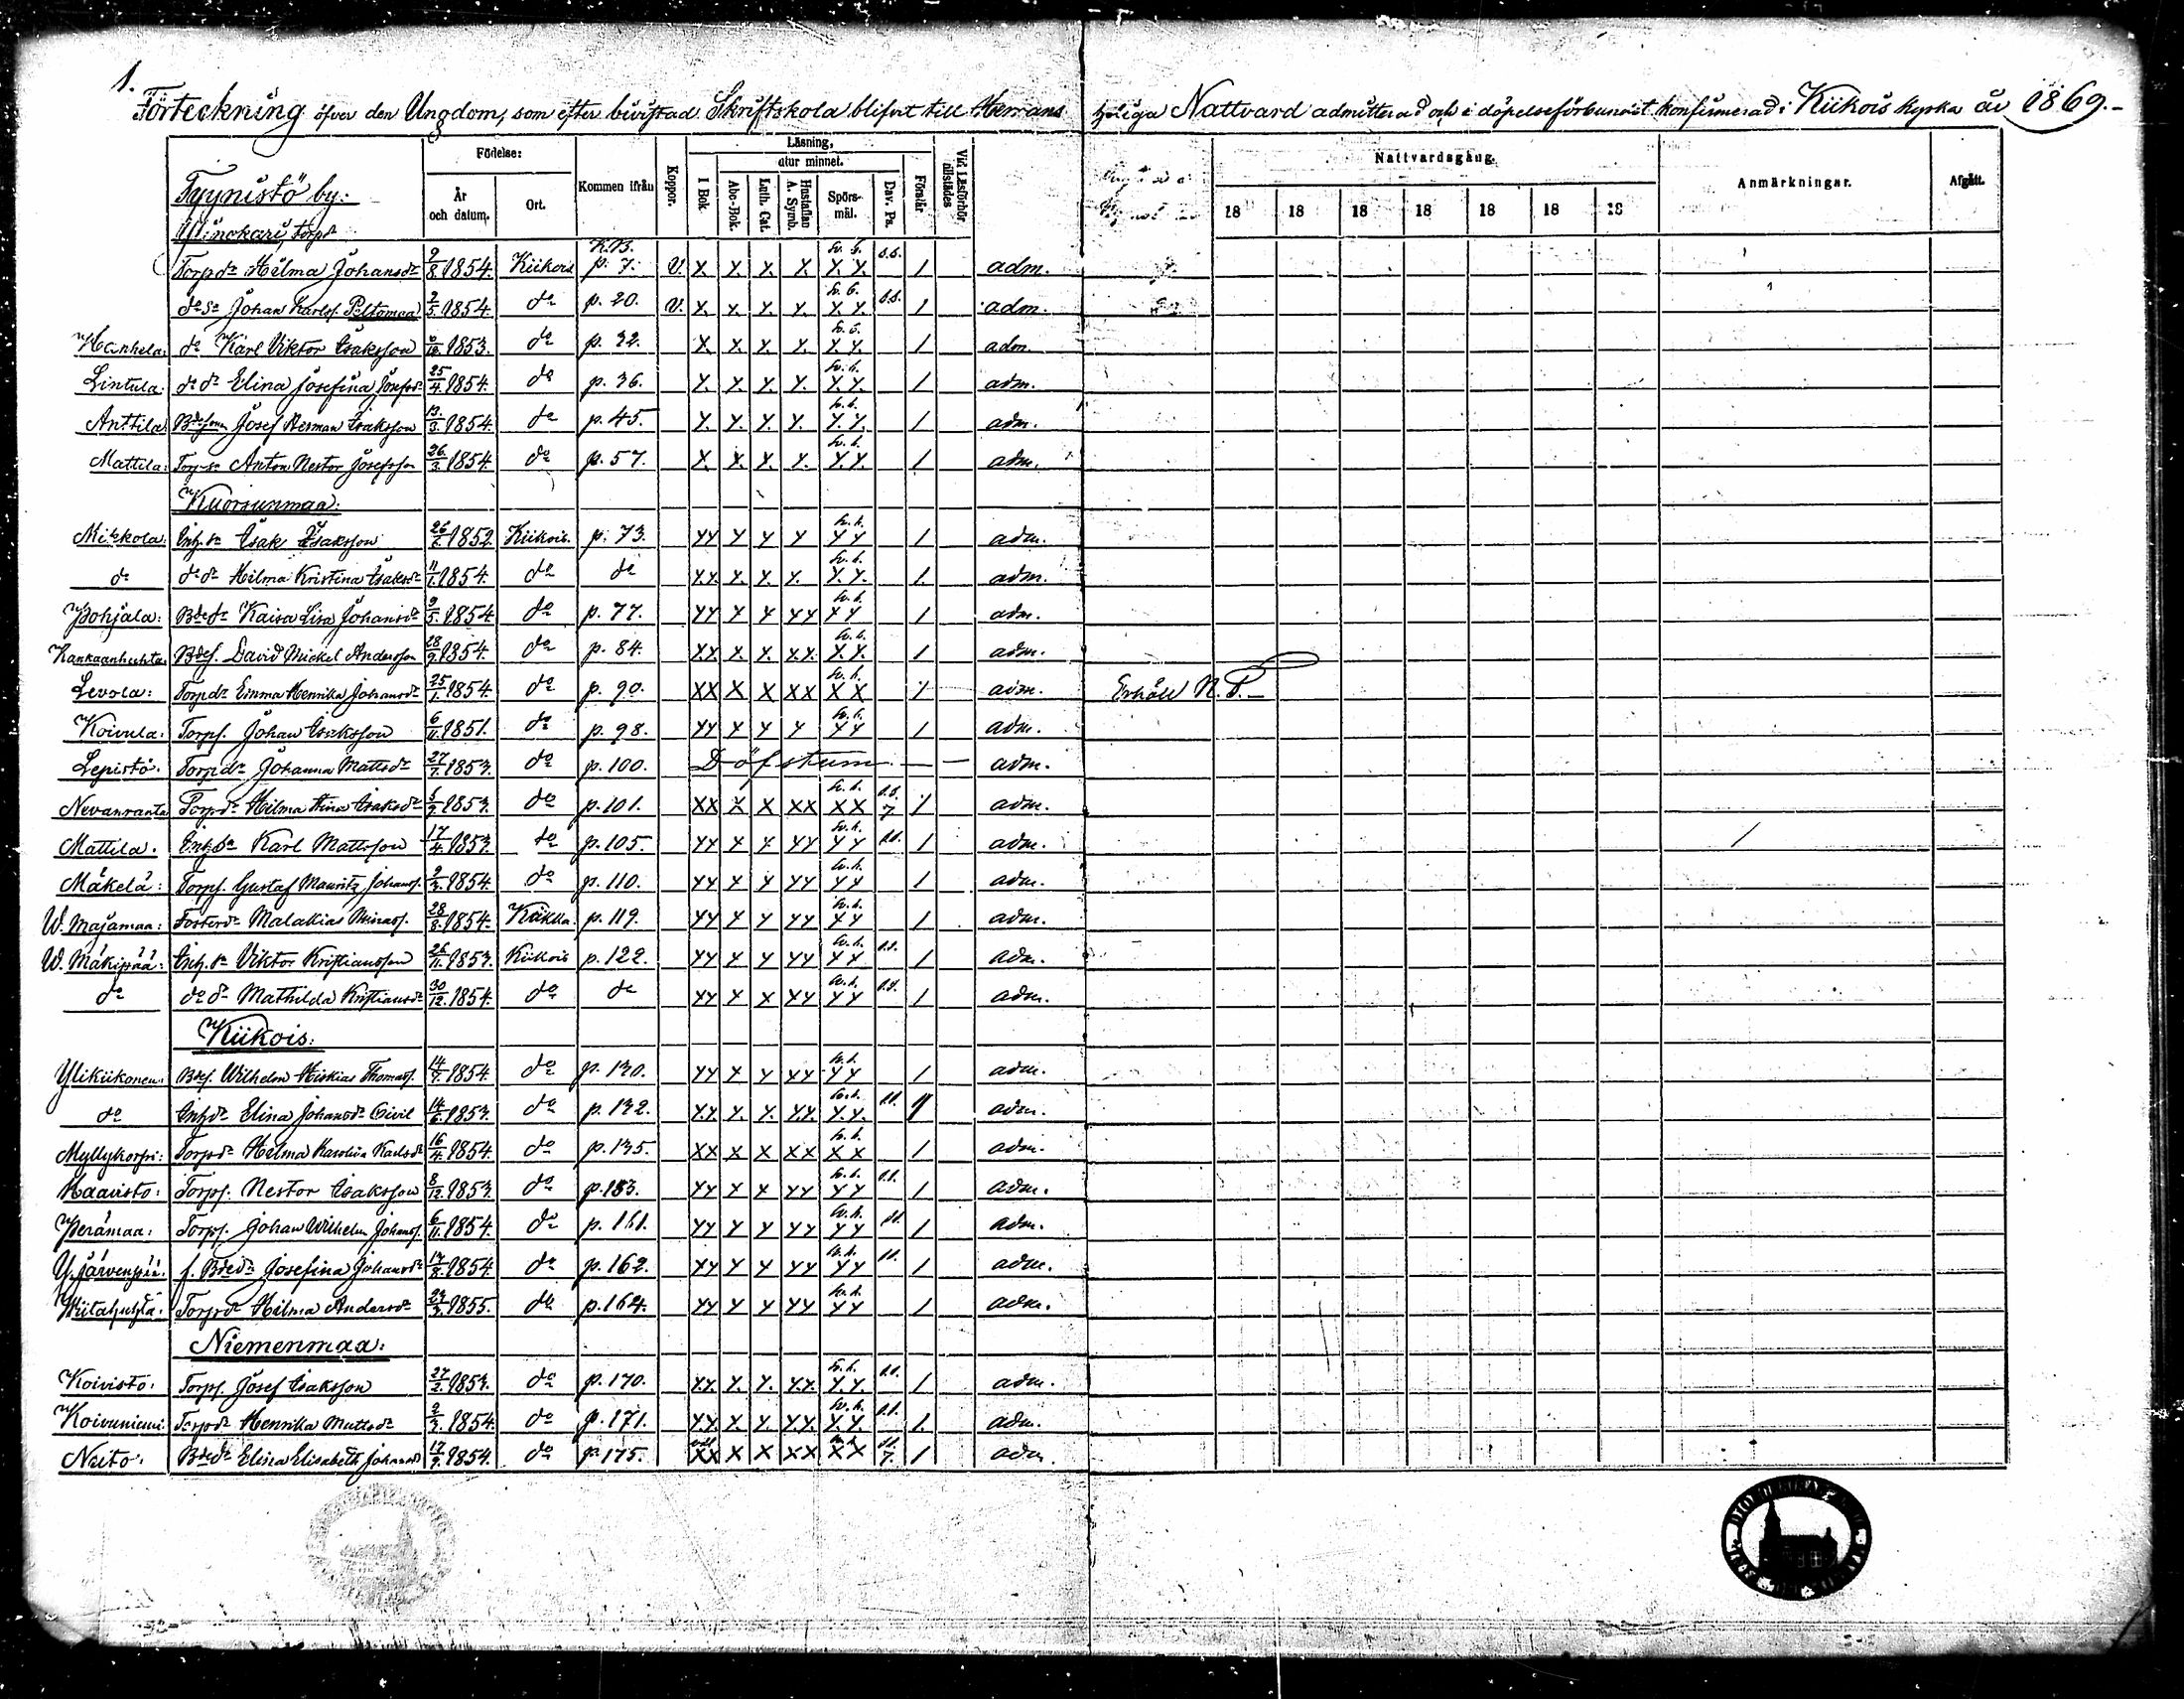 1.
Förteckning öfver den Ungdom, som efter bivistad Skriftskola blifvit till Herrans heliga Nattvard admitterad och i döpelseförbundet konfirmerad i Kiikois kyrka år 1869.-
Födelse: Kommen ifrån Koppor. Läsning, Vid Läsförhör tillstädes Nattvardsgång. Anmärkningar. Afgått.
År och datum. Ort. I Bok. utur minnet. Abc-Bok. Luth. Cat. Hustaflan A. Symb. Spörsmål. Dav. Ps. Förstår 18 18 18 18 18 18 18
Tyynistö by:
Torpdr Hilma Johansdr 9/8 1854. Kiikois K.B. p. 7. V. X. X. X. X. X. X. 1 adm.
do Sn Johan Karlss. Peltomaa 2/5 1854. do p. 20. V. X. X. X. X. X. X. 1 adm.
Hanhela: do Karl Viktor Isaksson 1853. do p. 32. X. X. X. X. X. X. 1 adm.
Lintula: do dr Elina Josefina Josefsdr 25/4 1854. do p. 36. X. X. X. X. X. X. 1 adm.
Anttila: Josef Herman Isaksson 13/3 1854. do p. 45. X. X. X. X. X. X. 1 adm.
Mattila: Anton Nestor Josefsson 26/3 1854. do p. 57. X. X. X. X. X. X. 1 adm.
Kuorsunmaa:
Mikkola: Inh. sn Isak Isaksson 1852. Kiikois. p. 73. XX X X X XX 1 adm.
do do dr Hilma Kristina Isaksdr 11/1 1854. do do XX. X. X. X. X. X. 1. adm.
Pohjala: Bdedr Kaisa Lisa Johansdr 9/5 1854 do p. 77. XX X X XX XX 1 adm.
Kankaanhuhta: Bdes. David Mickel Andersson 28/9 1854. do p. 84. XX X. X. XX. X. X. 1 adm.
Levola: Torpdr Emma Henrika Johansdr 25/1 1854. do p. 90. XX X X XX XX 1 adm. Erhöll N. T.-
Koivula: Torps. Johan Isaksson 6/11 1851. do p. 98. XX X X X XX 1 adm.
Lepistö. Torpdr Johanna Mattsdr 1853. do p. 100. Döfstum — — adm.
Nevanranta Torpdr Hilma Stina Isaksdr 1853. do p. 101. XX X X XX XX 7 1 adm.
Mattila. Inh. sn Karl Mattsson 17/4 1853. do p. 105. XX X X XX XX 1 adm.
Mäkelä: Torps. Gustaf Mauritz Johanss. 1854. do p. 110. XX X X XX XX 1 adm.
W. Majamaa: Malakias 28/8 1854. p. 119. XX X X XX XX 1 adm.
W. Mäkipää: Inh. sn Viktor Kristiansson 26/11 1853. Kiikois p. 122. XX X X XX XX 1 adm.
do do dr Mathilda Kristiansdr 30/12 1854. do do XX X X XX XX 1 adm.
Kiikois:
Ylikiikonen: Bdes. Wilhelm Hiskias Thomass. 1854. do p. 130. XX X X XX XX 1 adm.
do Inh. dr Elina Johansdr 14/6 1853. do p. 132. XX X. X. XX X.X. adm.
Myllykorpi: Torpdr Hilma Karolina Karlsdr 16/4 1854. do p. 135. XX X X XX XX 1 adm.
Haavisto: Torps. Nestor Isaksson 8/12 1853. do p. 153. XX X X XX XX 1 adm.
Perämaa: Torps. Johan Wilhelm Johanss. 6/11 1854. do p. 161. XX X X XX XX 1 adm.
Y. Järvenpää. f. Bdedr Josefina Johansdr 17/8 1854. do p. 162. XX X X XX XX 1 adm.
Torpdr Hilma Andersdr 1855. do p. 164. XX X X XX XX 1 adm.
Niemenmaa:
Koivisto: Torps. Josef Isaksson 27/2 1853. do p. 170. XX. X. X. XX. X.X. 1 adm.
Koivuniemi. Torpdr Henrika Mattsdr 1854. do p. 171. X.X. X. X. X.X. X.X. 1. adm.
Neito: Bdedr Elina Elisabeth Johansdr 1854. do p. 175. XX X X XX XX 7. 1 adm.